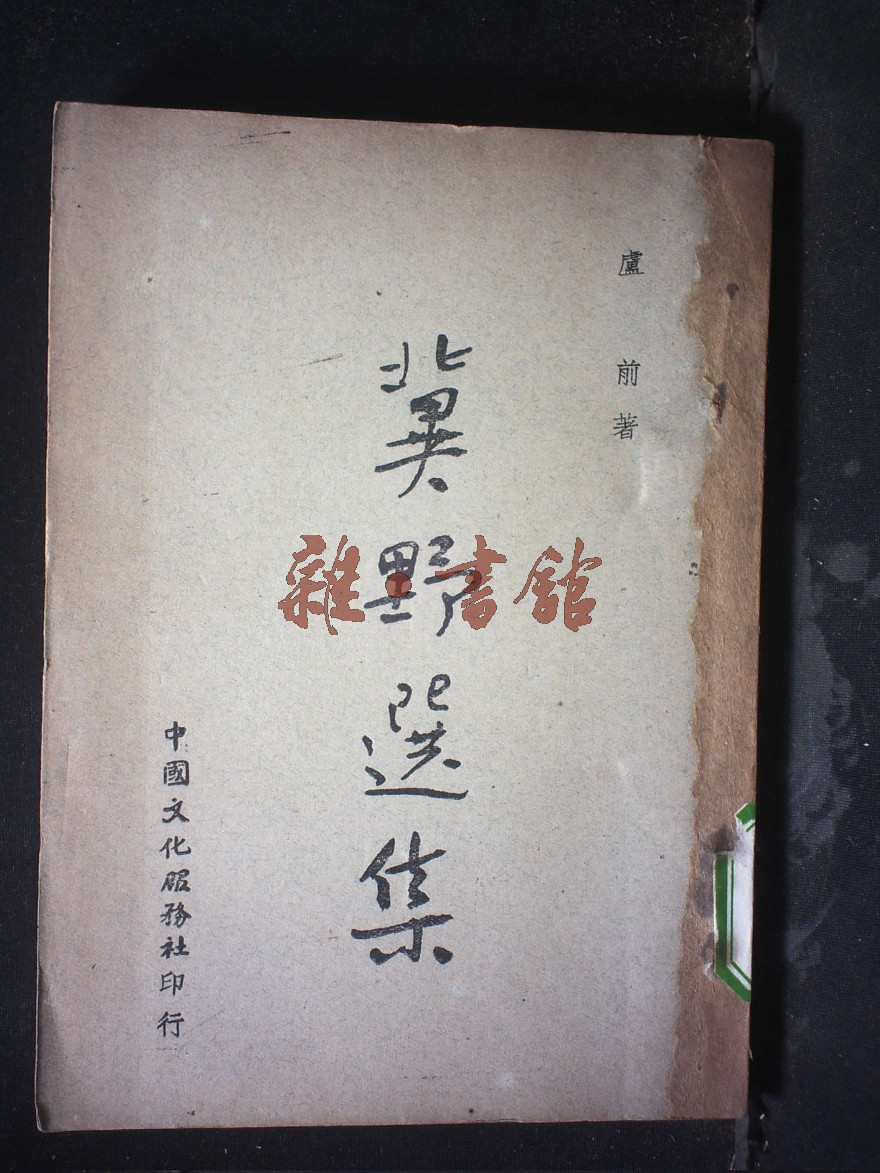 盧前著
冀野選集
中國文化服務社印行
雜·書館